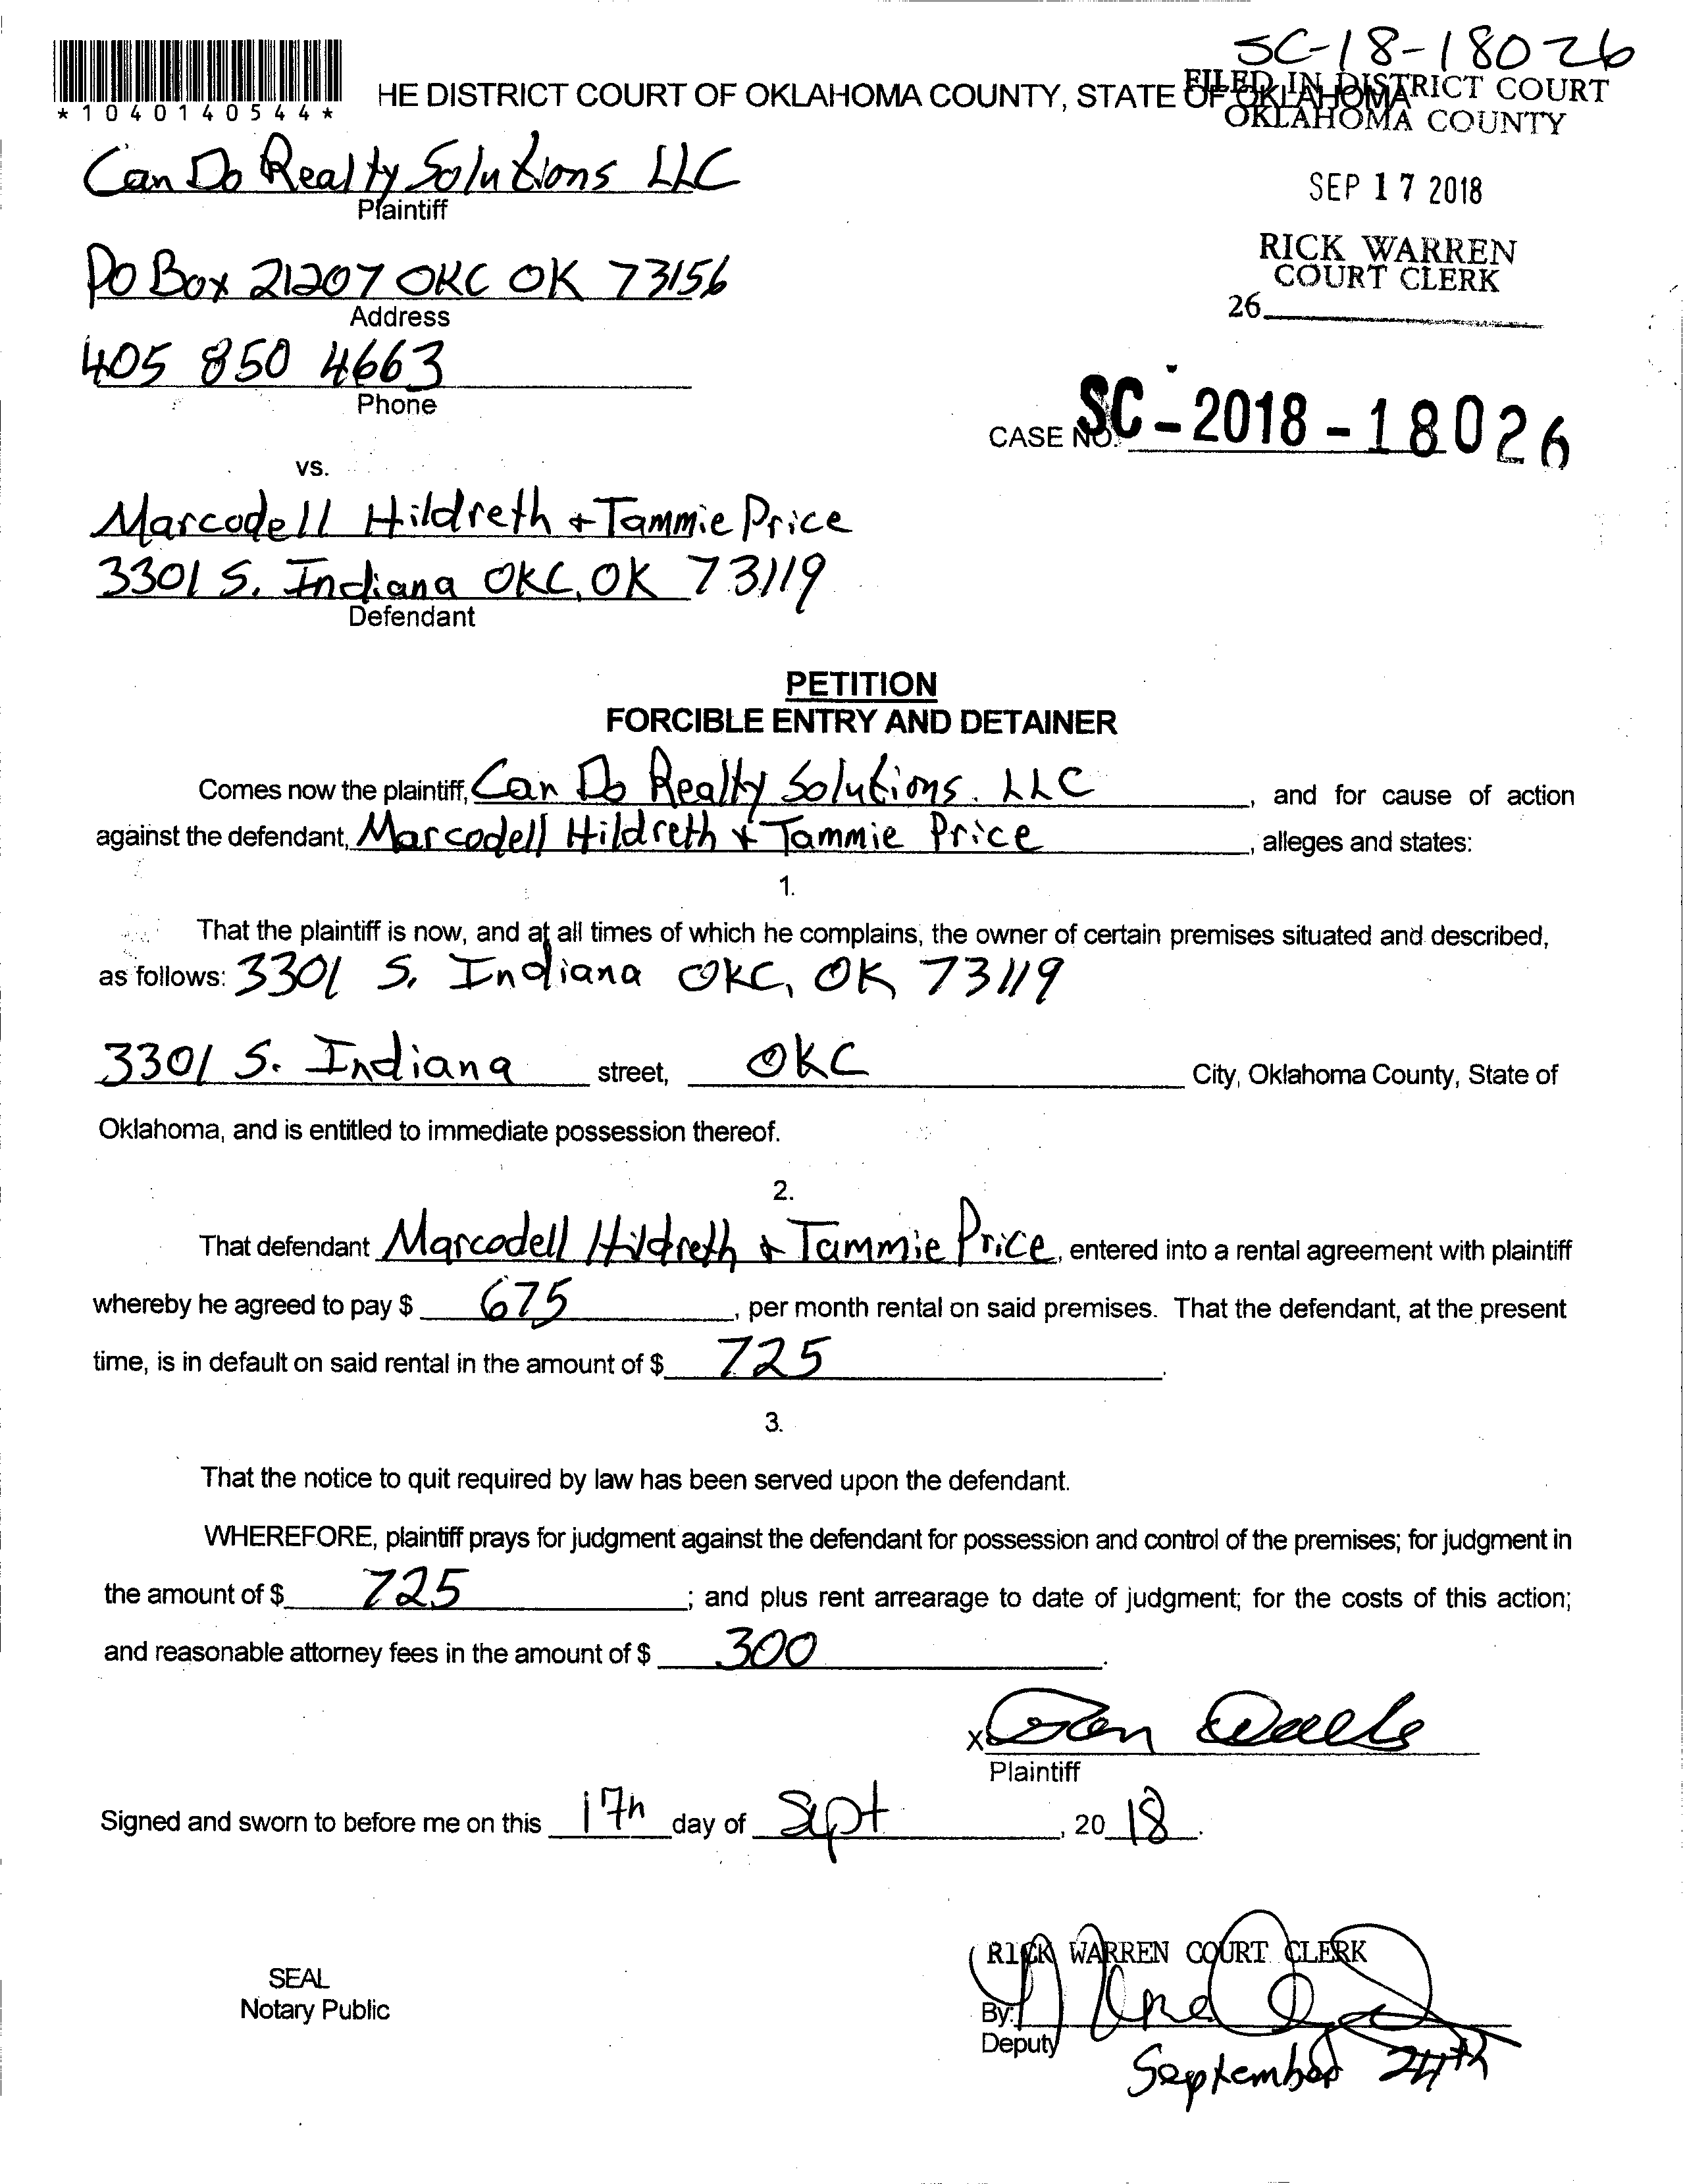 SC-18-18026
*1040140544*
HE DISTRICT COURT OF OKLAHOMA COUNTY, STATE OF OKLAHOMA
FILED IN DISTRICT COURT
OKLAHOMA COUNTY
Can Do Realty Solutions LLC
Plaintiff
SEP 17 2018
RICK WARREN
COURT CLERK
26
PO Box 21207 OKC OK 73156
Address
405 850 4663
Phone
CASE NO. SC-2018-18026
vs.
Marcodell Hildreth + Tammie Price
3301 S. Indiana OKC, OK 73119
Defendant
PETITION
FORCIBLE ENTRY AND DETAINER
Comes now the plaintiff, Can Do Realty Solutions. LLC, and for cause of action
against the defendant, Marcodell Hildreth + Tammie Price, alleges and states:
1.
That the plaintiff is now, and at all times of which he complains, the owner of certain premises situated and described,
as follows: 3301 S. Indiana OKC, OK 73119
3301 S. Indiana street, OKC City, Oklahoma County, State of
Oklahoma, and is entitled to immediate possession thereof.
2.
That defendant Marcodell Hildreth + Tammie Price, entered into a rental agreement with plaintiff
whereby he agreed to pay $ 675, per month rental on said premises. That the defendant, at the present
time, is in default on said rental in the amount of $ 725.
3.
That the notice to quit required by law has been served upon the defendant.
WHEREFORE, plaintiff prays for judgment against the defendant for possession and control of the premises; for judgment in
the amount of $ 725; and plus rent arrearage to date of judgment; for the costs of this action;
and reasonable attorney fees in the amount of $ 300.
X
Plaintiff
Signed and sworn to before me on this 17th day of Sept, 2018.
RICK WARREN COURT CLERK
SEAL
Notary Public
By:
Deputy
September 24th